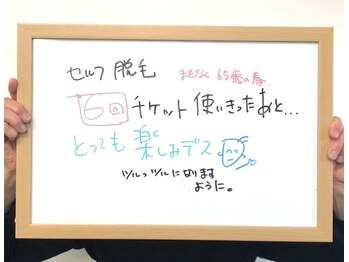 セルフ 脱毛
まもなく 65歳の春
6回 チケット 使いきったあと...
とっても 楽しみデス
ツルっツルになります
ように。